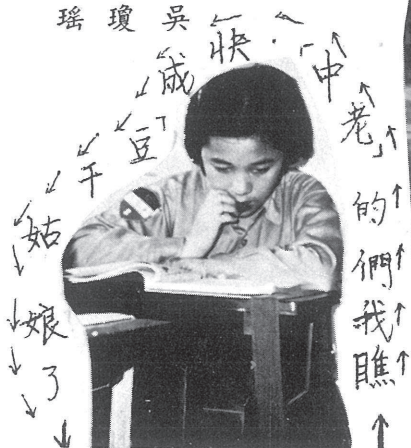 吳瓊瑤
瞧我們的「老中」,快成「豆干姑娘了